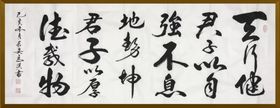 天行健
君子以自
強不息
地勢坤
君子以厚
德載物
己亥冬月
書